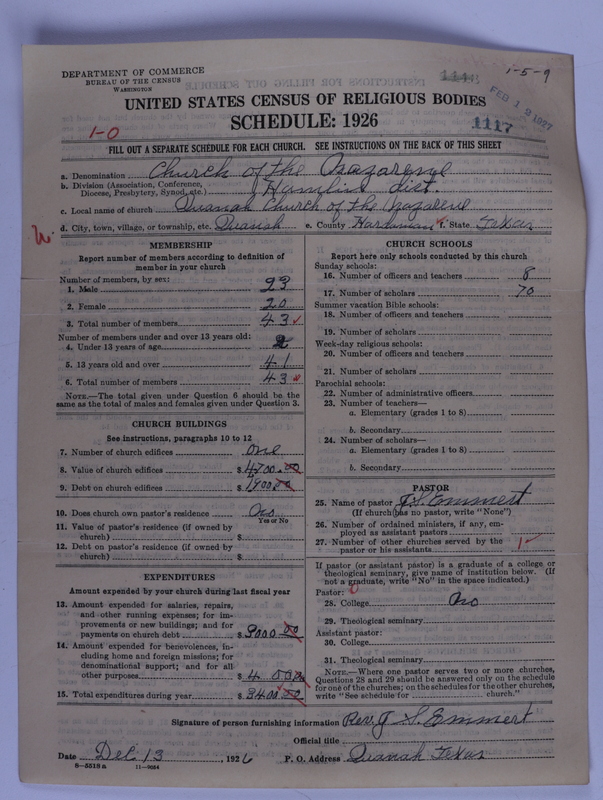 DEPARTMENT OF COMMERCE
BUREAU OF THE CENSUS
WASHINGTON
1-5-9
FEB 12 1927
UNITED STATES CENSUS OF RELIGIOUS BODIES
SCHEDULE: 1926
1117
1-0
FILL OUT A SEPARATE SCHEDULE FOR EACH CHURCH. SEE INSTRUCTIONS ON THE BACK OF THIS SHEET
a. Denomination Church of the Nazarene
b. Division (Association, Conference, Diocese, Presbytery, Synod, etc.) Hamlin dist.
c. Local name of church Quanah Church of the Nazarene
d. City, town, village, or township, etc. Quanah e. County Hardeman f. State Texas
MEMBERSHIP
Report number of members according to definition of
member in your church
Number of members, by sex:
1. Male 23
2. Female 20
3. Total number of members 43
Number of members under and over 13 years old:
4. Under 13 years of age 2
5. 13 years old and over 41
6. Total number of members 43
NOTE.—The total given under Question 6 should be
same as the total of males and females given under Question 3.
CHURCH BUILDINGS
See instructions, paragraphs 10 to 12
7. Number of church edifices one
8. Value of church edifices $ 4700.00
9. Debt on church edifices $ 1400.00
10. Does church own pastor's residence no
Yes or No
11. Value of pastor's residence (if owned by
church) $
12. Debt on pastor's residence (if owned by
church) $
EXPENDITURES
Amount expended by your church during last fiscal year
13. Amount expended for salaries, repairs,
and other running expenses; for im-
provements or new buildings; and for
payments on church debt $ 3000.00
14. Amount expended for benevolences, in-
cluding home and foreign missions; for
denominational support; and for all
other purposes $ 400
15. Total expenditures during year $ 3400.00
CHURCH SCHOOLS
Report here only schools conducted by this church
Sunday schools:
16. Number of officers and teachers 8
17. Number of scholars 70
Summer vacation Bible schools:
18. Number of officers and teachers
19. Number of scholars
Week-day religious schools:
20. Number of officers and teachers
21. Number of scholars
Parochial schools:
22. Number of administrative officers
23. Number of teachers—
a. Elementary (grades 1 to 8)
b. Secondary
24. Number of scholars—
a. Elementary (grades 1 to 8)
b. Secondary
PASTOR
25. Name of pastor J. S. Emmert
(If church has no pastor, write "None")
26. Number of ordained ministers, if any, em-
ployed as assistant pastors
27. Number of other churches served by the
pastor or his assistants 1
If pastor (or assistant pastor) is a graduate of a college or
theological seminary, give name of institution below. (If
not a graduate, write "No" in the space indicated.)
Pastor:
28. College no
29. Theological seminary
Assistant pastor:
30. College
31. Theological seminary
NOTE.—Where one pastor serves two or more churches,
Questions 28 and 29 should be answered only on the schedule
for one of the churches; on the schedules for the other churches,
write "See schedule for church."
Signature of person furnishing information Rev. J. S. Emmert
Official title
Date Dec 13, 1926 P. O. Address Quanah Texas
8-5518a 11-9034